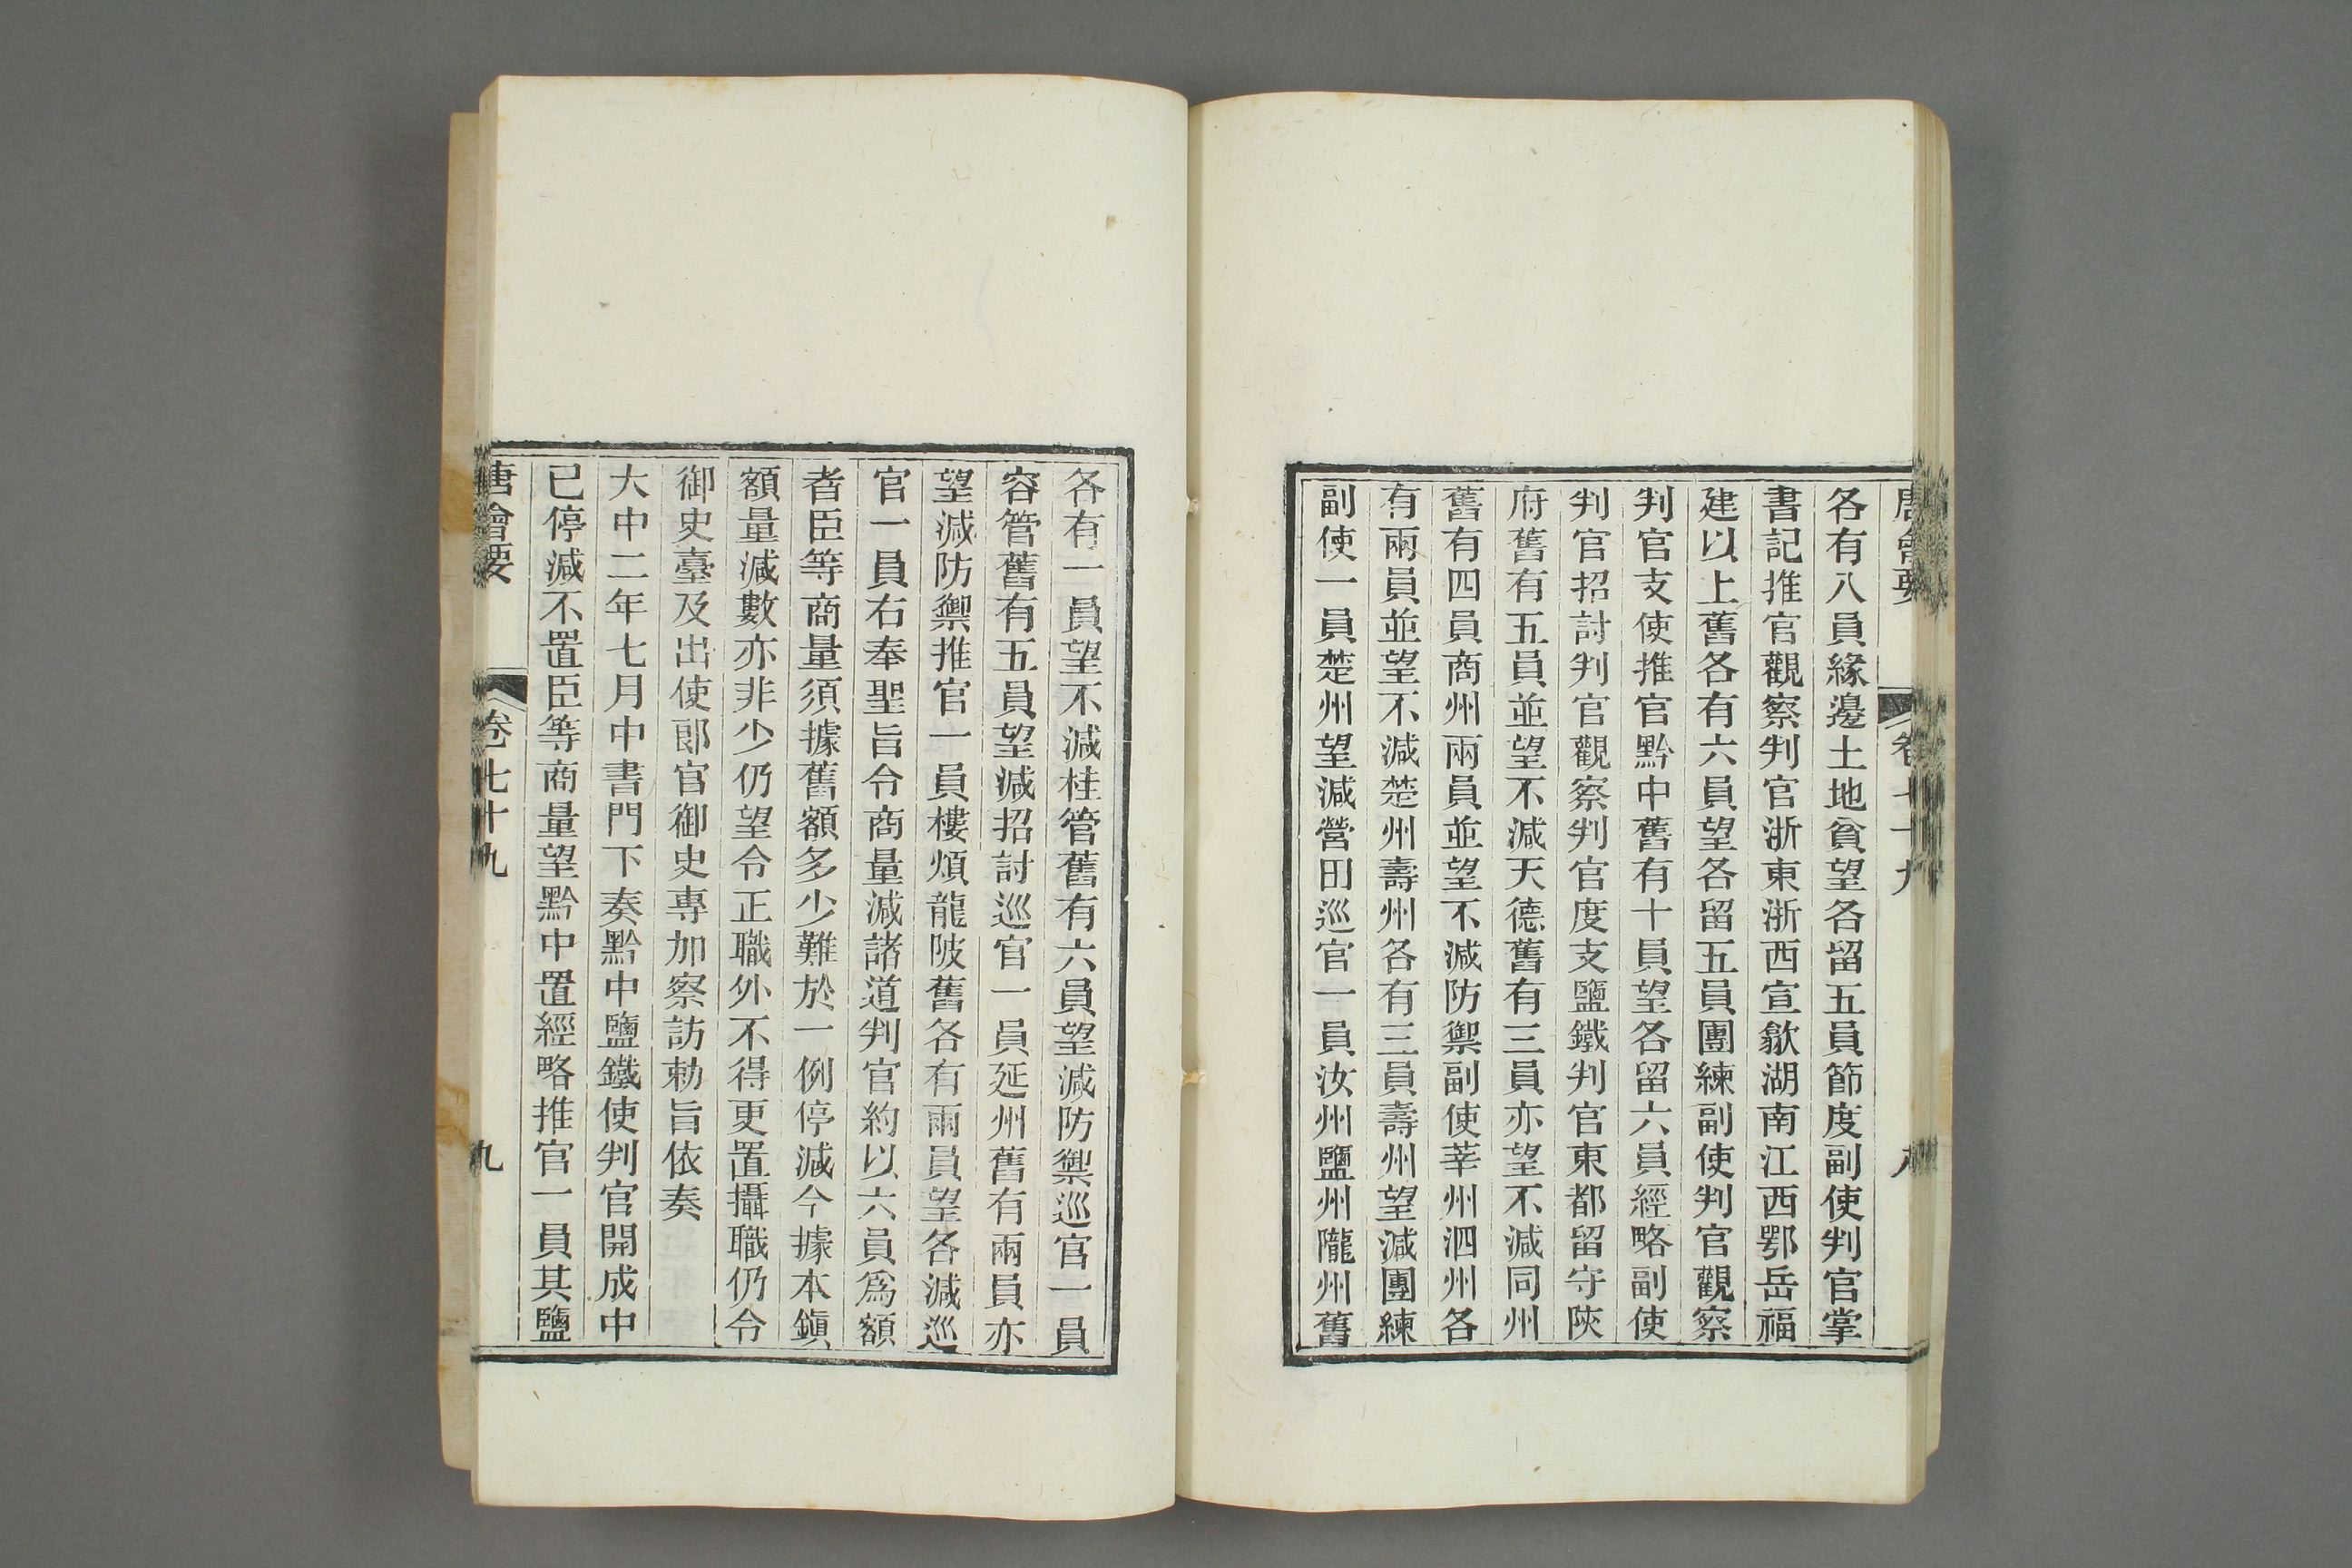 唐會要 卷七十九 八
各有八員緣邊土地貧望各留五員節度副使判官掌
書記推官觀察判官浙東浙西宣歙湖南江西鄂岳福
建以上舊各有六員望各留五員團練副使判官觀察
判官支使推官黔中舊有十員望各留六員經略副使
判官招討判官觀察判官度支鹽鐵判官東都留守陝
府舊有五員並望不減天德舊有三員亦望不減同州
舊有四員商州兩員並望不減防禦副使莘州泗州各
有兩員並望不減楚州壽州各有三員壽州望減團練
副使一員楚州望減營田巡官一員汝州鹽州隴州舊
各有一員望不減桂管舊有六員望減防禦巡官一員
容管舊有五員望減招討巡官一員延州舊有兩員亦
望減防禦推官一員樓煩龍陂舊各有兩員望各減巡
官一員右奉聖旨令商量減諸道判官約以六員爲額
者臣等商量須據舊額多少難於一例停減今據本鎮
額量減數亦非少仍望令正職外不得更置攝職仍令
御史臺及出使郎官御史專加察訪勅旨依奏
大中二年七月中書門下奏黔中鹽鐵使判官開成中
已停減不置臣等商量望黔中置經略推官一員其鹽
唐會要 卷七十九 九